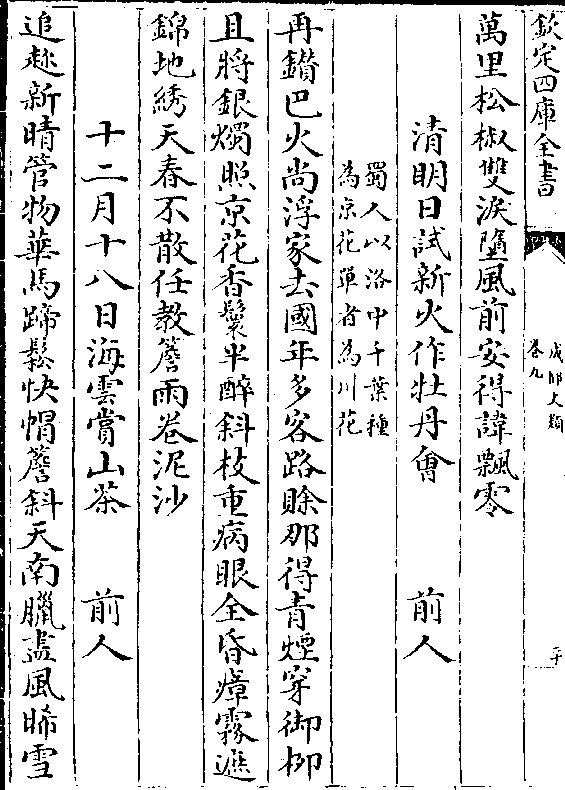 欽定四庫全書
成都文類
卷九
萬里松椒雙淚墮風前安得諱飄零
清明日試新火作牡丹會 前人
蜀人以洛中千葉種
為京花單者為川花
再鑽巴火尚浮家去國年多客路賖那得青煙穿御柳
且將銀燭照京花香鬟半醉斜枝重病眼全昏瘴霧遮
錦地綉天春不散任教簷雨卷泥沙
十二月十八日海雲賞山茶 前人
追趂新晴管物華馬蹄鬆快帽簷斜天南臘盡風晞雪